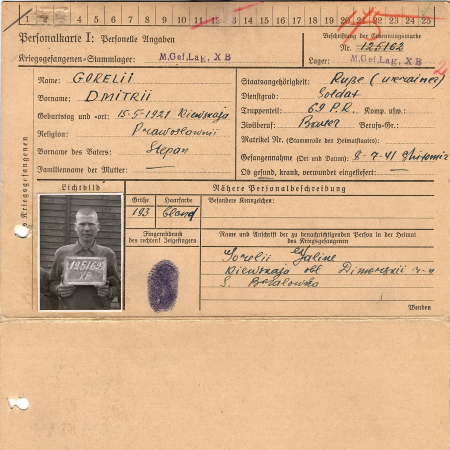 1 2 3 4 5 6 7 8 9 10 11 12 13 14 15 16 17 18 19 20 21 22 23 24 25
Personalkarte I: Personelle Angaben
Kriegsgefangenen-Stammlager: M.Gef.Lag. X B
Beschriftung der Erkennungsmarke
Nr. 125162
Lager: M.Gef.Lag. X B
des Kriegsgefangenen
Name: GORELII
Vorname: DMITRII
Geburtstag und -ort: 15.5.1921 Kiewskaja
Religion: Prawoslawnii
Vorname des Vaters: Stepan
Familienname der Mutter: —
Staatsangehörigkeit: Ruße (ukrainer)
Dienstgrad: Soldat
Truppenteil: 69 P.R. Komp. usw.
Zivilberuf: Bauer Berufs-Gr.:
Matrikel Nr. (Stammrolle des Heimatstaates):
Gefangennahme (Ort und Datum): 8-7-41 Shitomir
Ob gesund, krank, verwundet eingeliefert: —
Lichtbild
125162
XB
Nähere Personalbeschreibung
Größe Haarfarbe
193 blond
Besondere Kennzeichen:
Fingerabdruck
des rechten! Zeigefingers
Name und Anschrift der zu benachrichtigenden Person in der Heimat
des Kriegsgefangenen
Gorelii Galine
Kiewskaja obl
Wenden